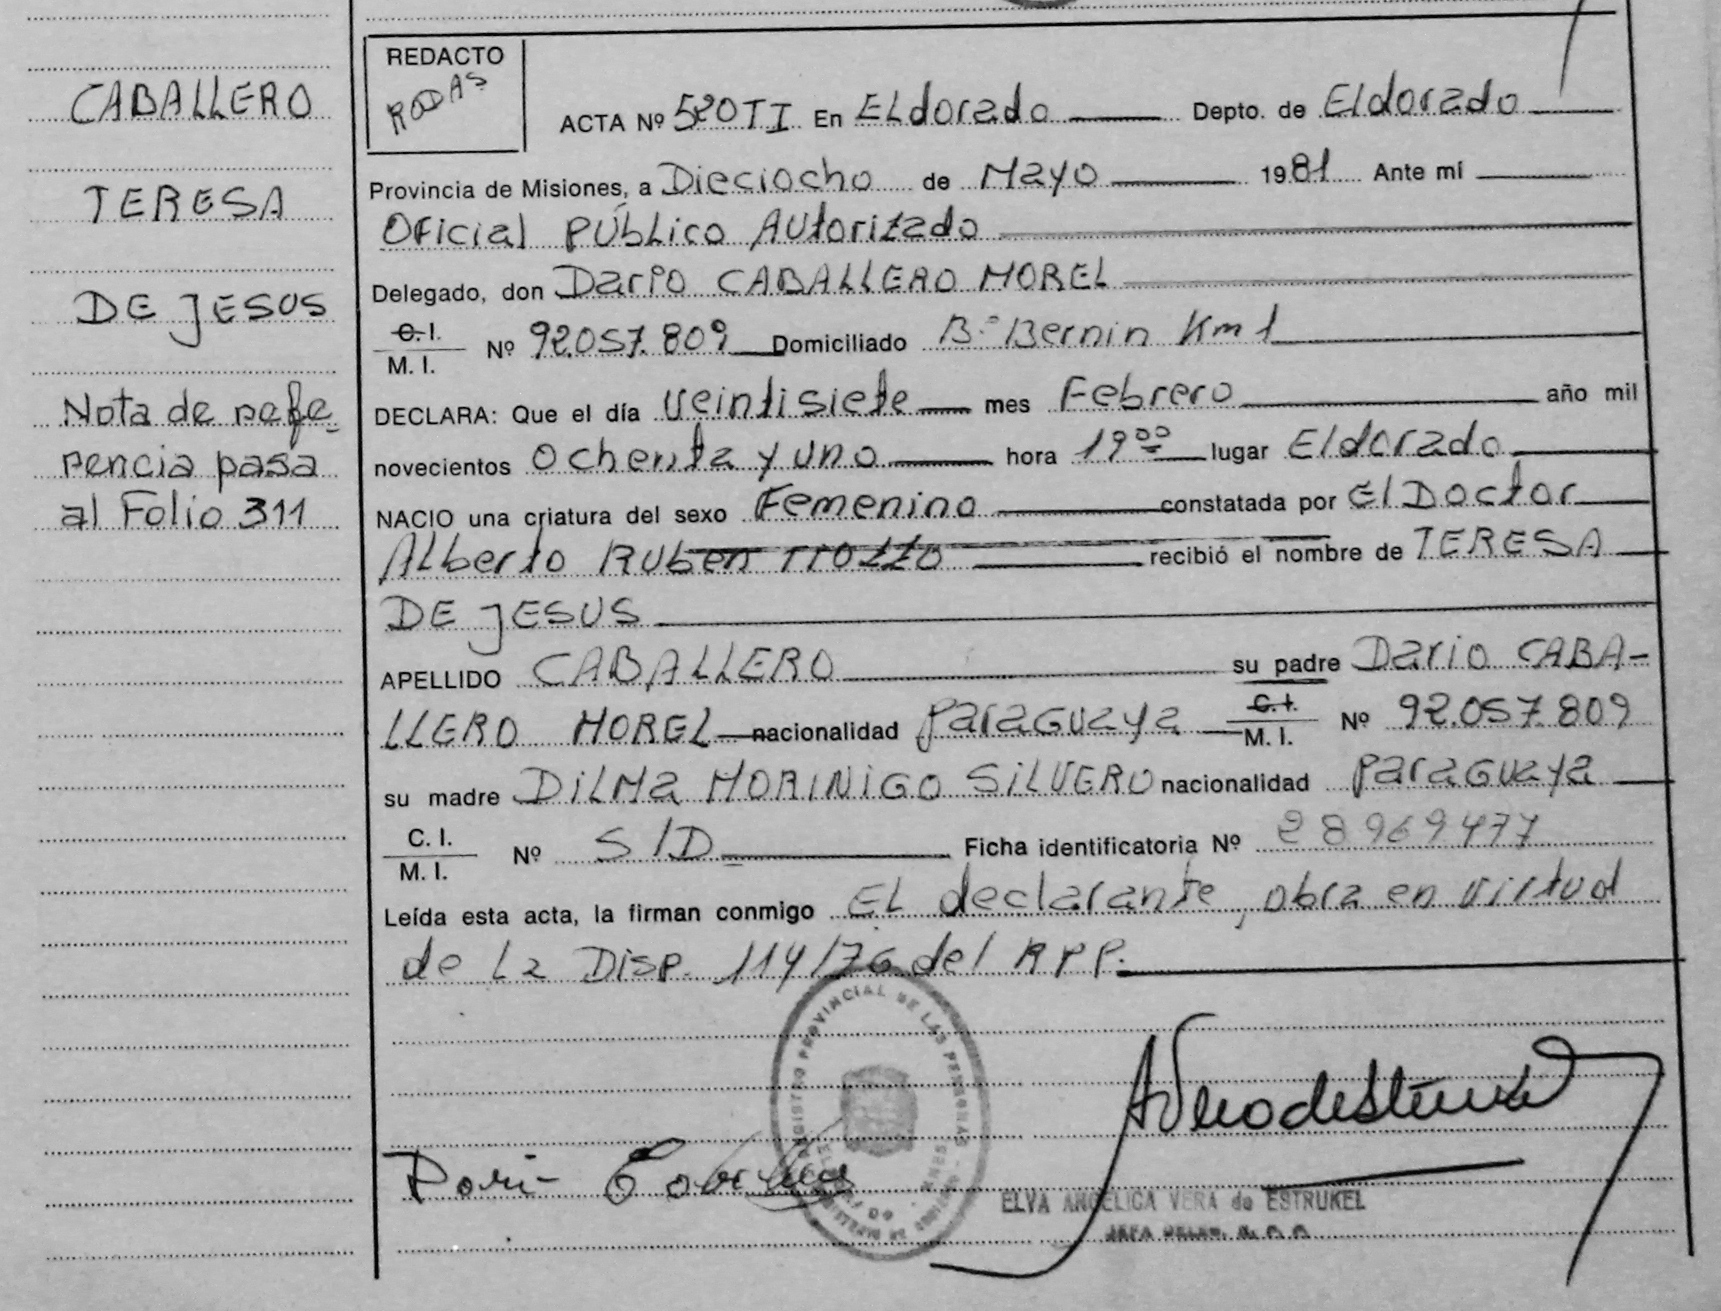 CABALLERO
TERESA
DE JESUS
Nota de refe-
rencia pasa
al Folio 311
REDACTO
RODAS
ACTA Nº 520TI En ELdorado Depto. de Eldorado
Provincia de Misiones, a Dieciocho de Mayo 1981 Ante mí
Oficial PÚBLico Autorizado
Delegado, don Dario CABALLERO MOREL
C. I.
M. I. Nº 92.057.809 Domiciliado Bº Bernin Km 1
DECLARA: Que el día veintisiete mes Febrero año mil
novecientos Ochenta y uno hora 19⁰⁰ lugar Eldorado
NACIO una criatura del sexo Femenino constatada por El Doctor
Alberto Ruben recibió el nombre de TERESA
DE JESUS
APELLIDO CABALLERO su padre Dario CABA-
LLERO MOREL nacionalidad paraguaya C. I.
M. I. Nº 92.057.809
su madre DiLMa MORINIGO SiLVERO nacionalidad paraguaya
C. I.
M. I. Nº S/D Ficha identificatoria Nº 28969477
Leída esta acta, la firman conmigo EL declarante, obra en virtud
de La Disp. 114/76 del RPP.
REGISTRO PROVINCIAL DE LAS PERSONAS
ELVA ANGELICA VERA de ESTRUKEL
JEFA